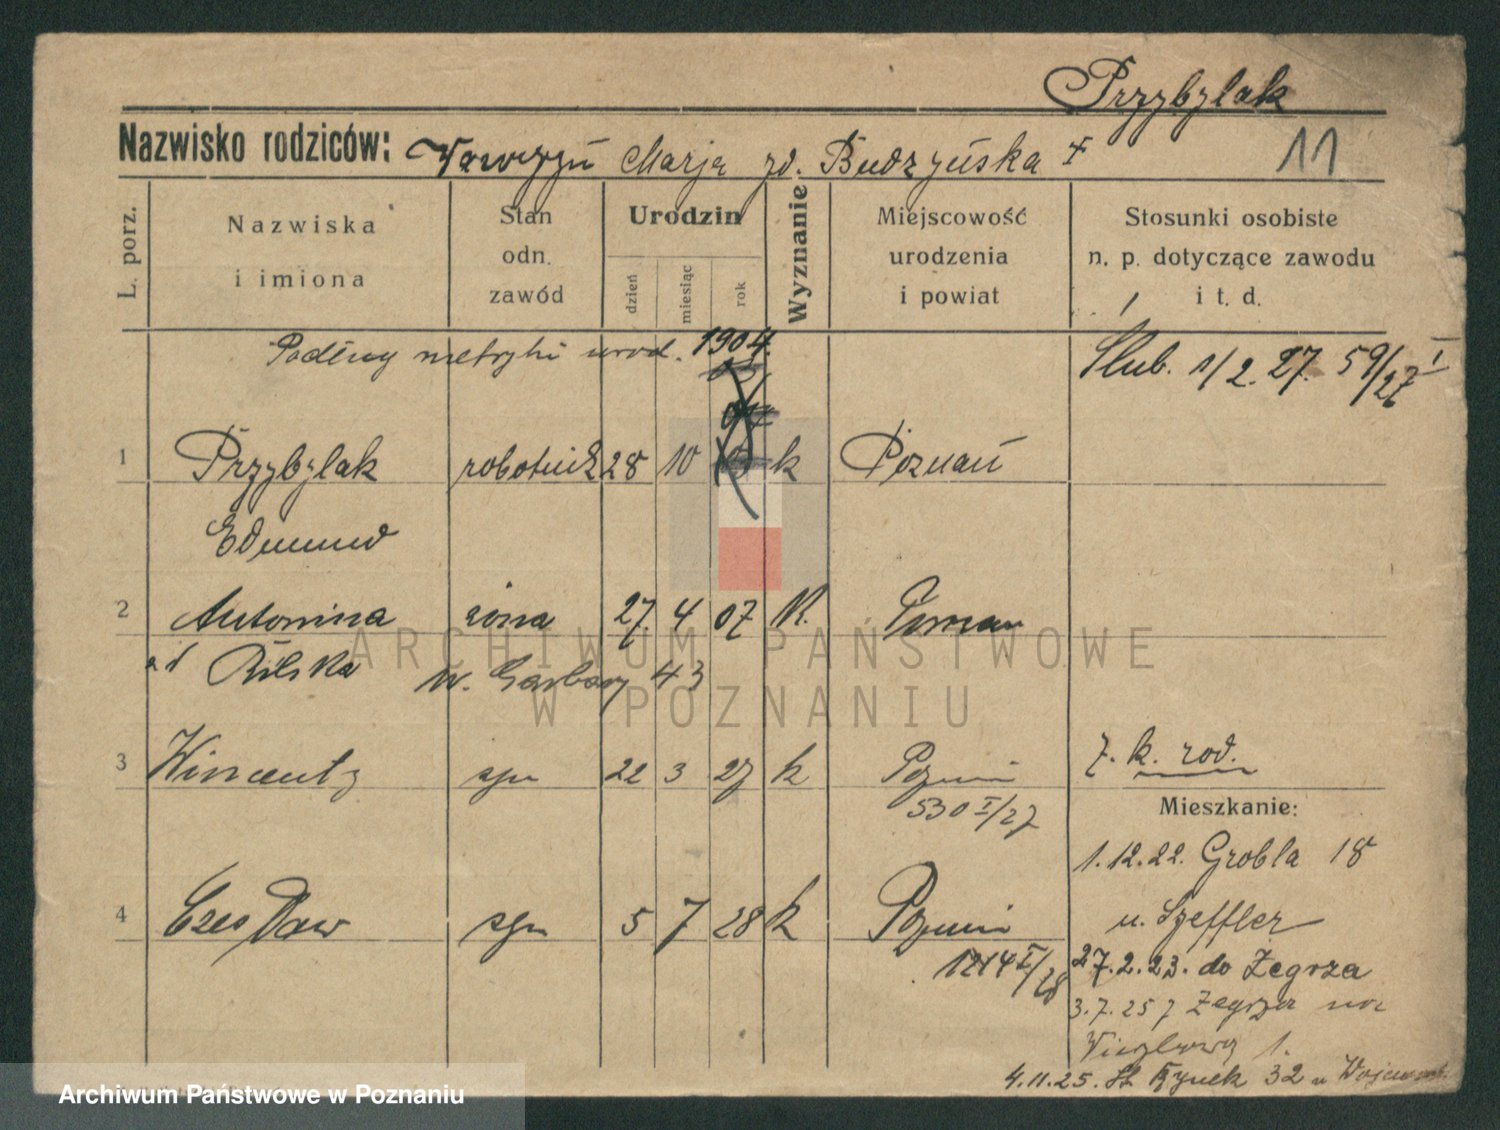 Przybylak
Nazwisko rodziców: Wawrzyn Marja zd. Budzyńska +
11
L. porz.
Nazwiska i imiona
Stan odn. zawód
Urodzin
dzień
miesiąc
rok
Wyznanie
Miejscowość urodzenia i powiat
Stosunki osobiste n. p. dotyczące zawodu i t. d.
metryki urod. 1904.
Ślub. 1/2. 27. 59/27 I
1 Przybylak robotnik 28 10 k Poznań
Edmund
2 Antonina żona 27. 4 07 K. Poznań
zd Rilska W. Garbary 43
ARCHIWUM PAŃSTWOWE
W POZNANIU
3 Wincenty syn 22 3 27 k Poznań
530 I/27
7. k. rod.
Mieszkanie:
1.12.22. Grobla 18
u. Szeffler
4 Czesław syn 5 7 28 k Poznań
1214 I/28
27.2.23. do Żegrza
3.7.25 z Żegrza
1.
4.11.25. St. Rynek 32 u
Archiwum Państwowe w Poznaniu